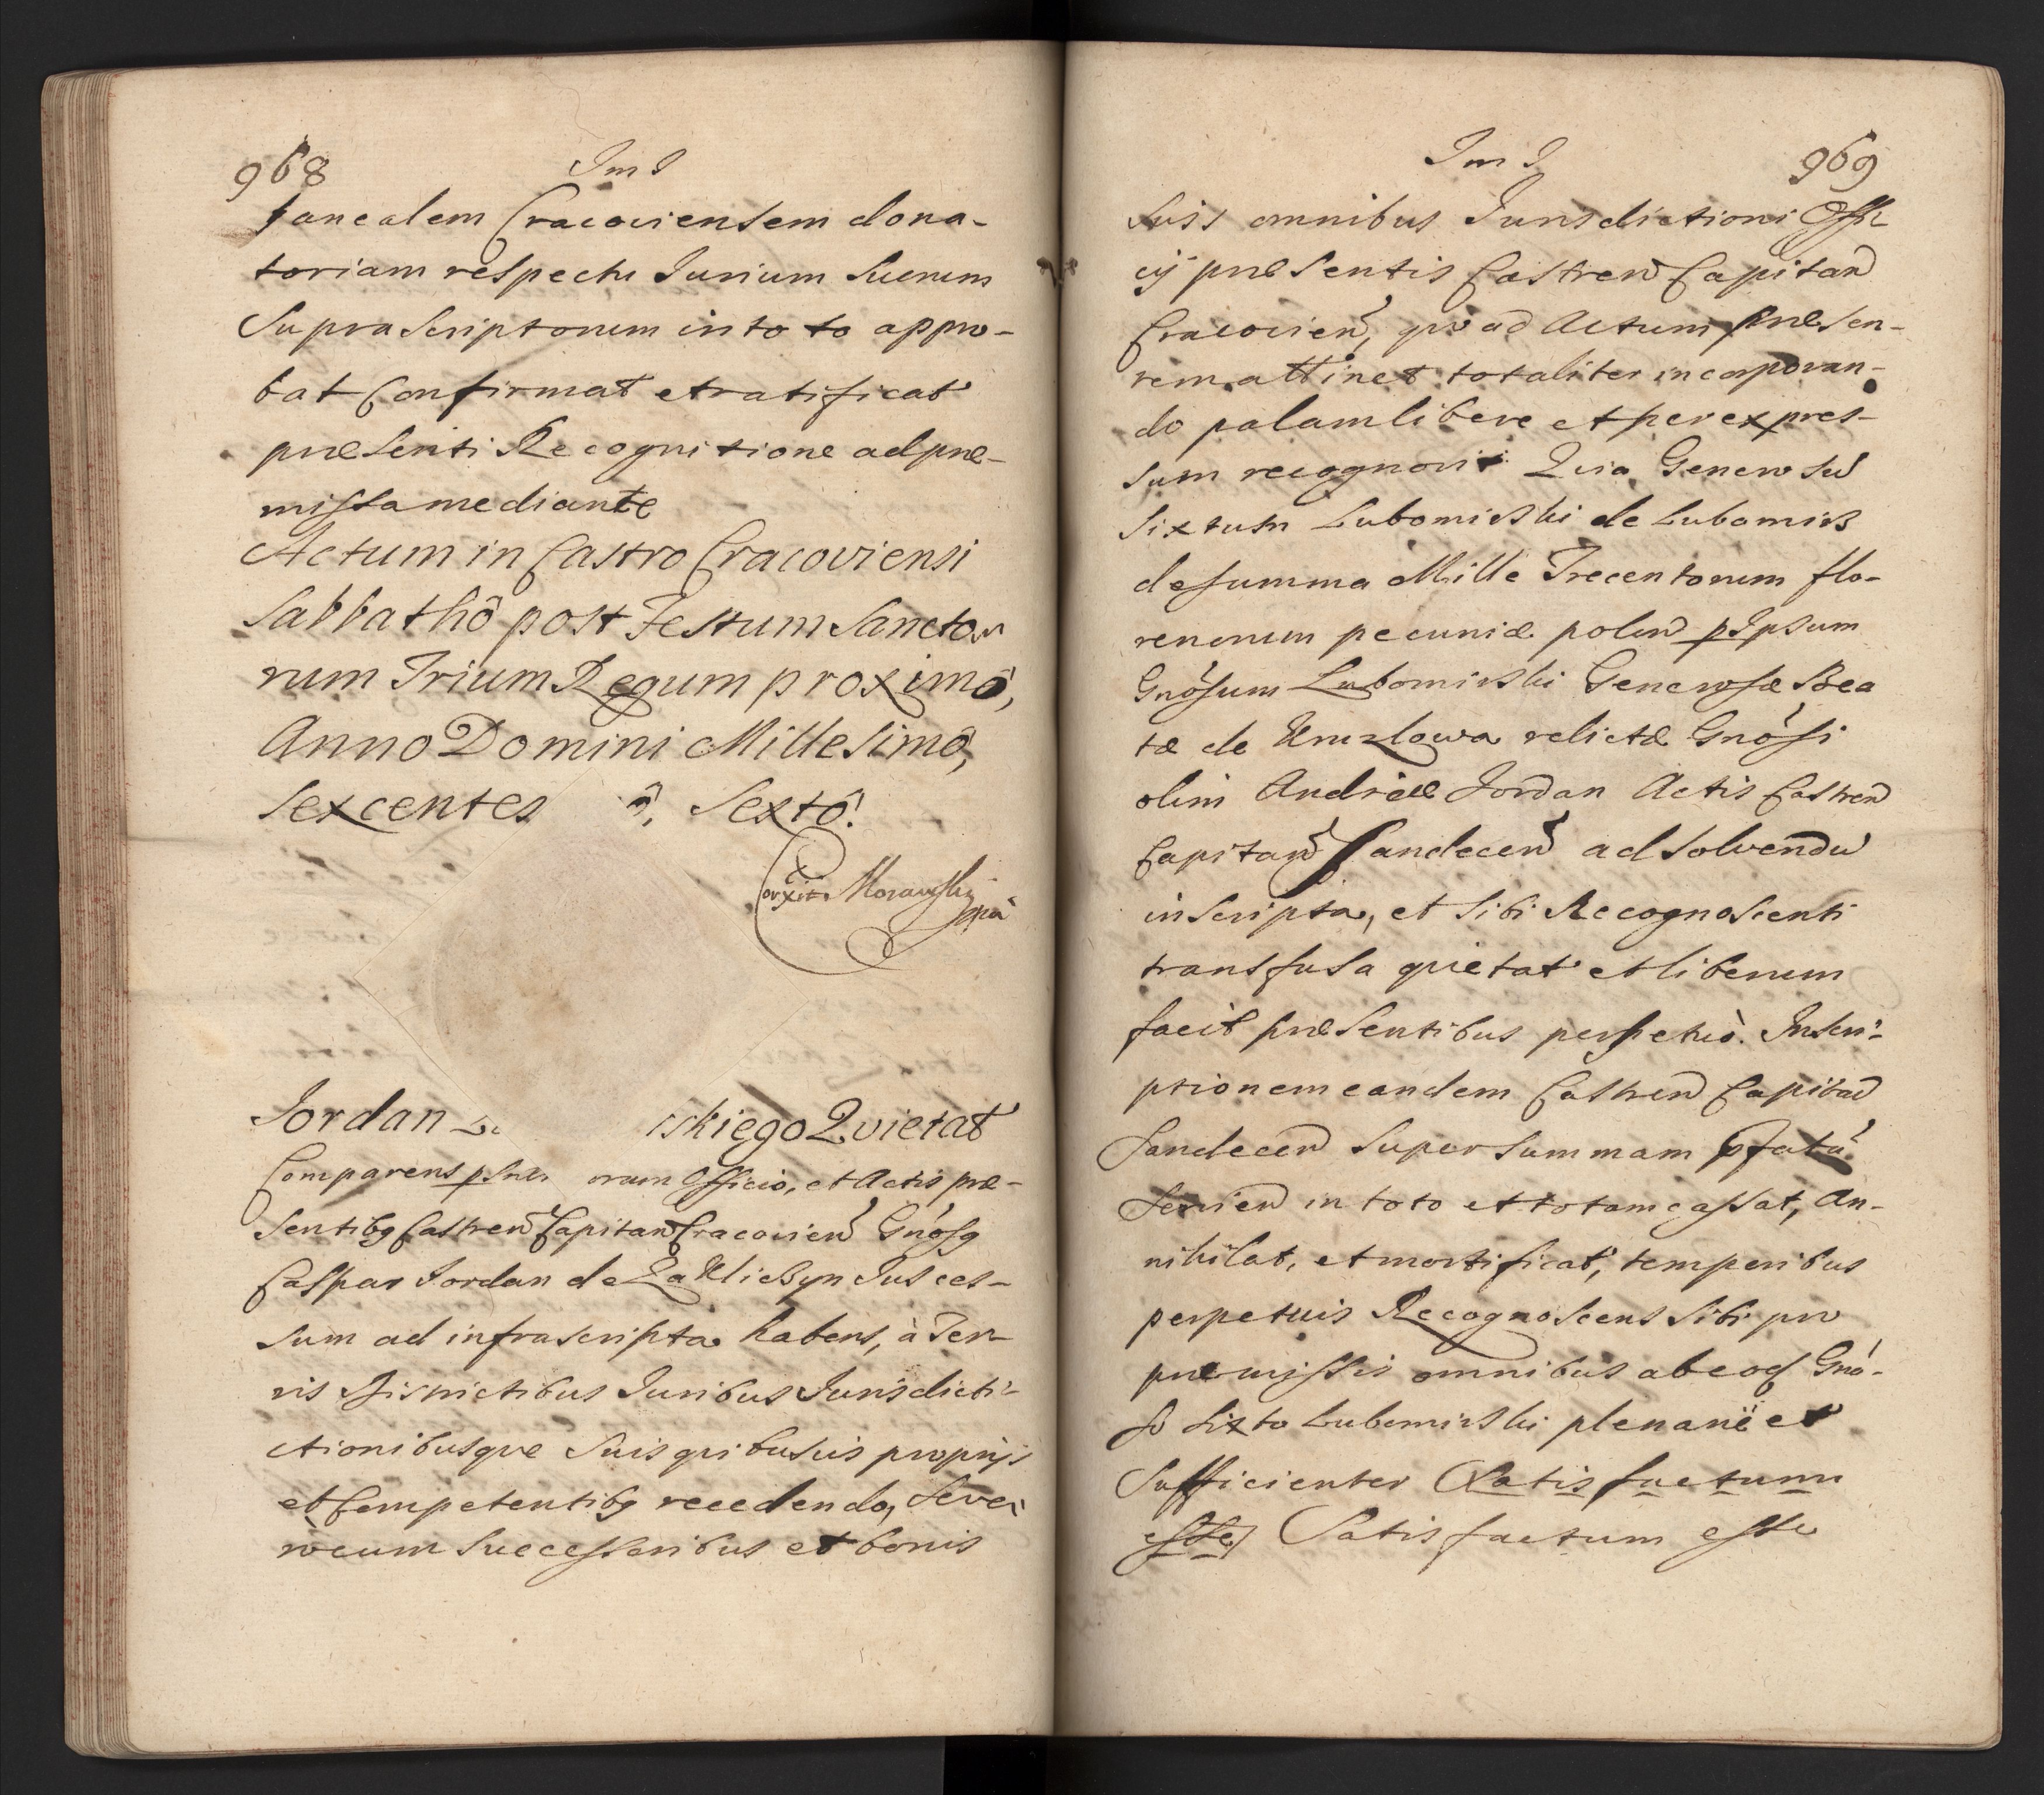 968 Im I
sancalem Cracoviensem dona-
toriam respectu Iurium Suorum
Supra Scriptorum in to to appro-
bat Confirmat et ratificat
præsenti Recognitione ad præ-
missa mediante
Actum in Castro Cracoviensi
Sabbathô post Festum Sancto
rum Trium Regum proximô,
Anno Domini Millesimô,
Sexcentes ô, Sextô.
Corxit Morawsky
mpà
Jordan skiego Qvietat
Comparens psnr oram Officio, et Actis præ-
sentibg Castren Capitan Cracovien Gnosg
Caspar Jordan de Zakliczyn Jus ces-
sum ad infrascripta habens, à Ter-
ris Districtibus Iuribus Iurisdicti-
ctionibusqve Suis qvibusvis proprijs
et Competentibg recedendo, Seve
rò cum Successoribus et bonis
Im I 969
Suis omnibus Iurisdictioni Offi-
cij præsentis Castren Capitan
Cracovien, qvo ad Actum præsen-
tem attinet totaliter incorporan-
do palam libere et per expres-
sum recognovit Qvia Generosu
Sixtum Lubomirski de Lubomirz
de summa Mille Trecentorum flo-
renorum pecuniæ polon p Ipsum
Gnosum Lubomirski Generosæ Bea
tæ de relictæ Gnosi
olim Andreæ Jordan Actis Castren
Capitan Sandecen ad solvendu
inscripta, et sibi Recognoscenti
transfusa qvietat et liberum
facit præsentibus perpetuò. Inscri-
ptionem eandem Castren Capitan
Sandecen super summam pfatâ
Servien in toto et totam cassat, An-
nihilat, et mortificat, temporibus
perpetuis Recognoscens sibi pro
præmissis omnibus ab eod Gno-
so Sixto Lubomirski plenariè et
Sufficienter (Satis factum
esse) Satisfactum esse